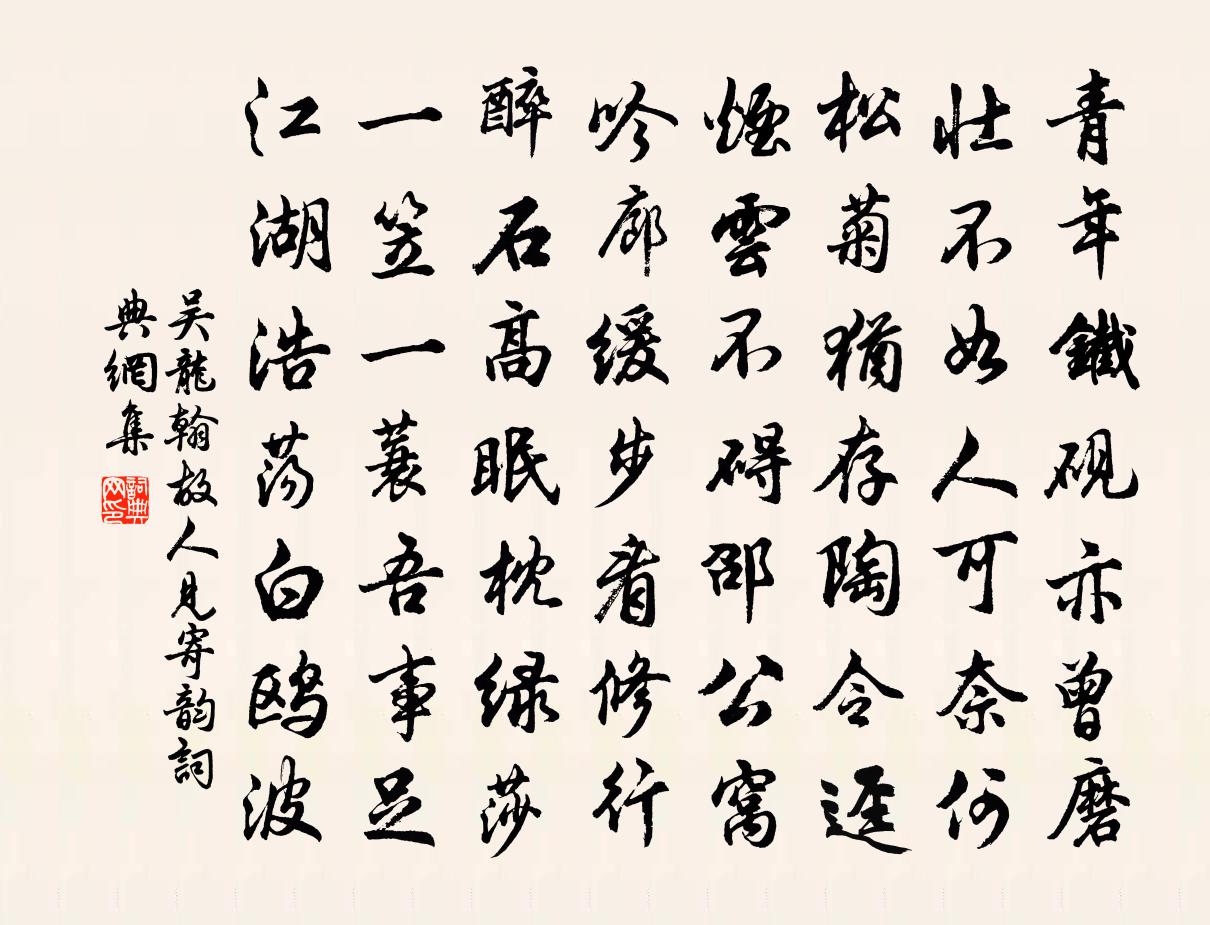 青年鐵硯亦曾磨
壯不如人可奈何
松菊猶存陶令逕
煙雲不碍邵公窩
吟廊緩步看修行
醉石高眠枕綠莎
一笠一蓑吾事足
江湖浩荡白鸥波
吴龍翰故人見寄韵詞
典網集
詞典
网印